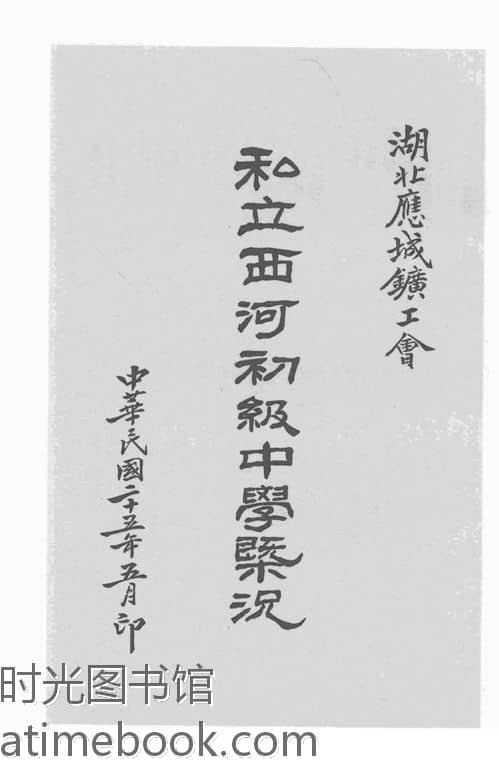 湖北應城鑛工會
私立西河初級中學槩況
中華民國二十五年五月印
时光图书馆
atimebook.com